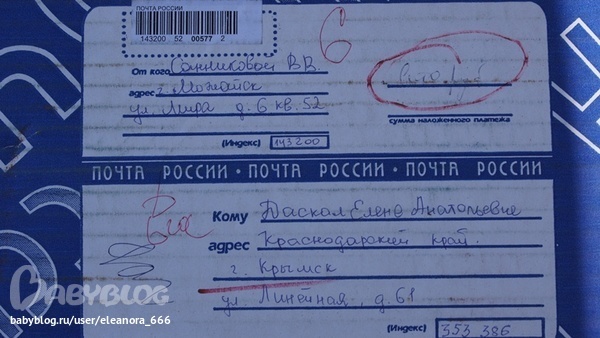 ПОЧТА РОССИИ
143200 52 00577 2
6
От кого Санниковой В.В.
адрес г. Можайск
ул. Мира д. 6 кв. 52
сумма наложенного платежа
(Индекс) 143200
ПОЧТА РОССИИ • ПОЧТА РОССИИ • ПОЧТА РОССИИ
Кому Даскал Елене Анатольевне
адрес Краснодарский край.
г. Крымск
ул Линейная, д. 61
(Индекс) 353 386
BABYBLOG
babyblog.ru/user/eleanora_666